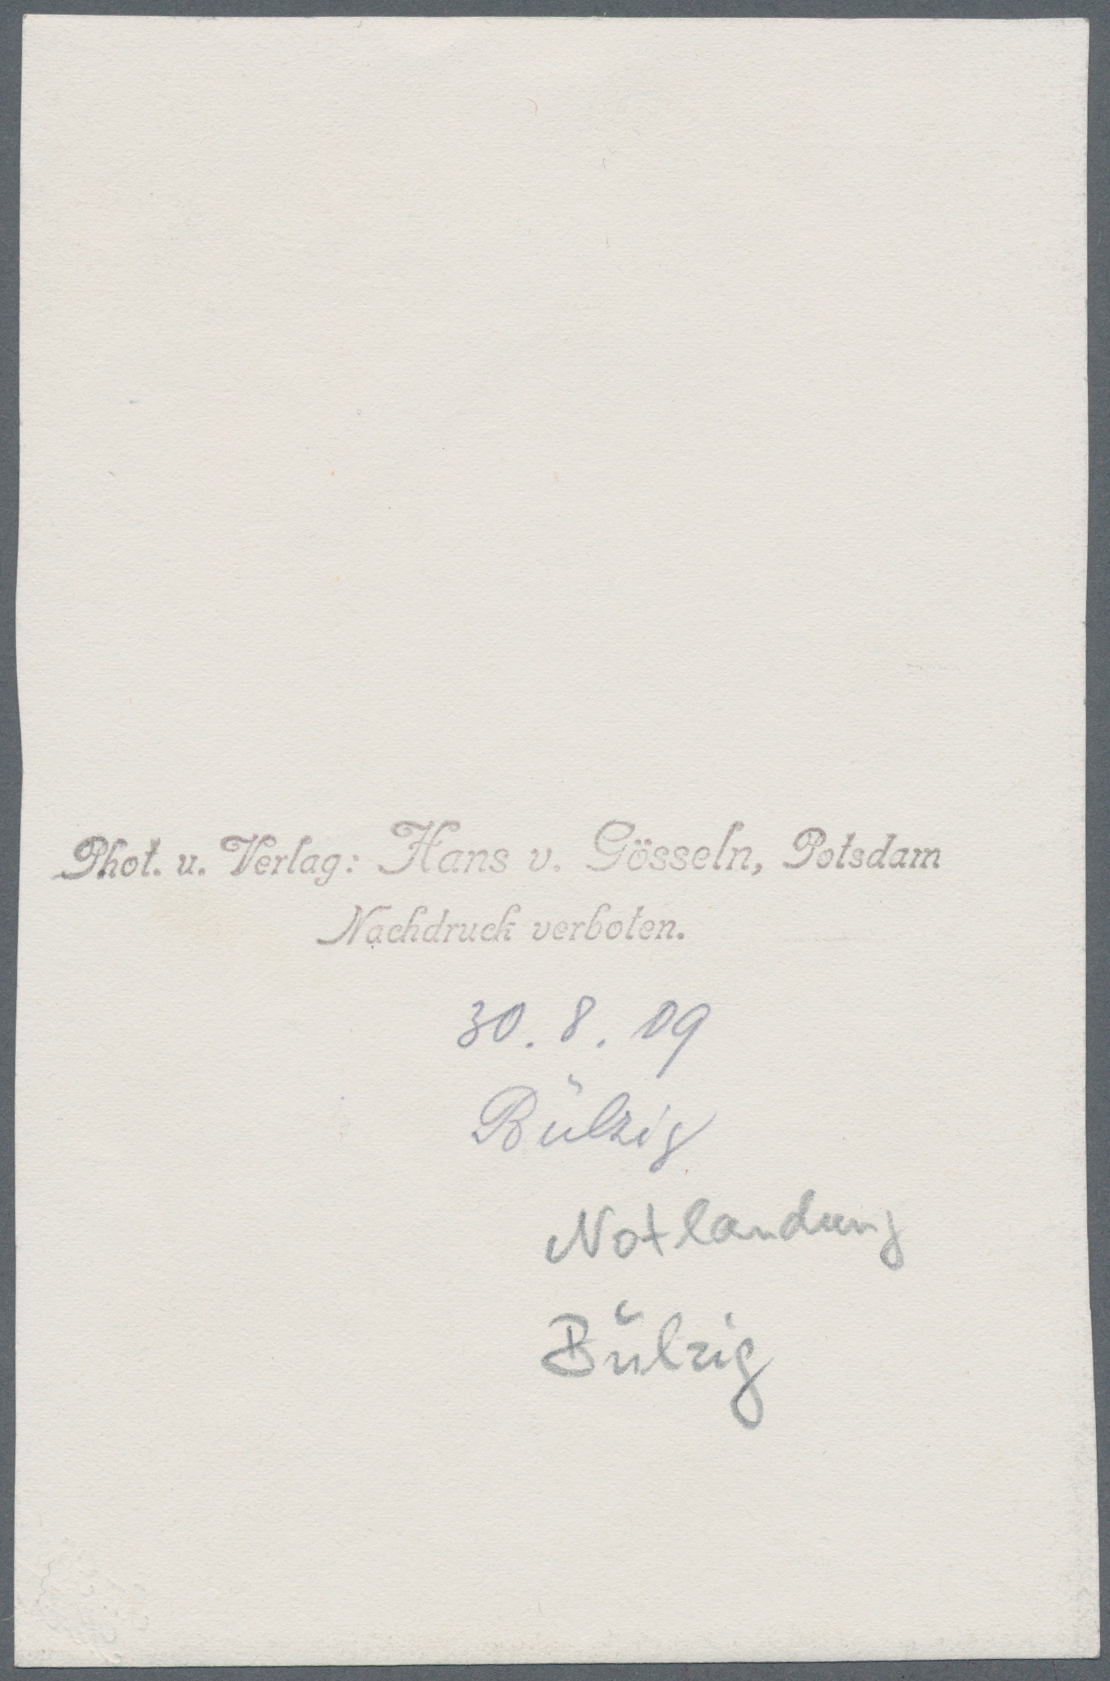 Phot. u. Verlag: Hans v. Gösseln, Potsdam
Nachdruck verboten.
30. 8. 09
Bülzig
Notlandung
Bülzig